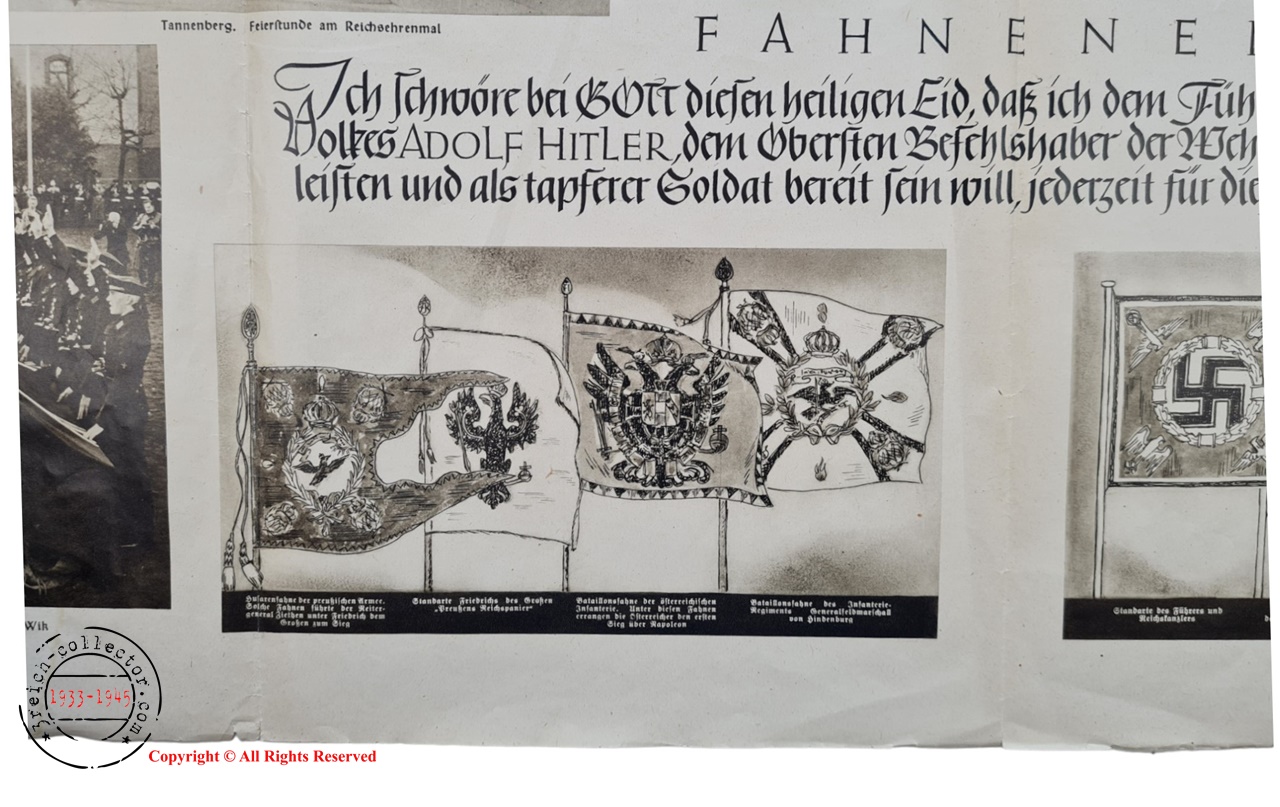 Tannenberg. Feierstunde am Reichsehrenmal
FAHNENE
Ich schwöre bei GOTT diesen heiligen Eid, daß ich dem Füh
Volkes ADOLF HITLER, dem Obersten Befehlshaber der Weh
leisten und als tapferer Soldat bereit sein will, jederzeit für die
Husarenfahne der preußischen Armee.
Solche Fahnen führte der Reiter-
general Ziethen unter Friedrich dem
Großen zum Sieg
Standarte Friedrichs des Großen
„Preußens Reichspanier“
Bataillonsfahne der österreichischen
Infanterie. Unter diesen Fahnen
errangen die Österreicher den ersten
Sieg über Napoleon
Bataillonsfahne des Infanterie-
Regiments Generalfeldmarschall
von Hindenburg
Standarte des Führers und
Reichskanzlers
Wik
3reich-collector.com
1933-1945
Copyright © All Rights Reserved